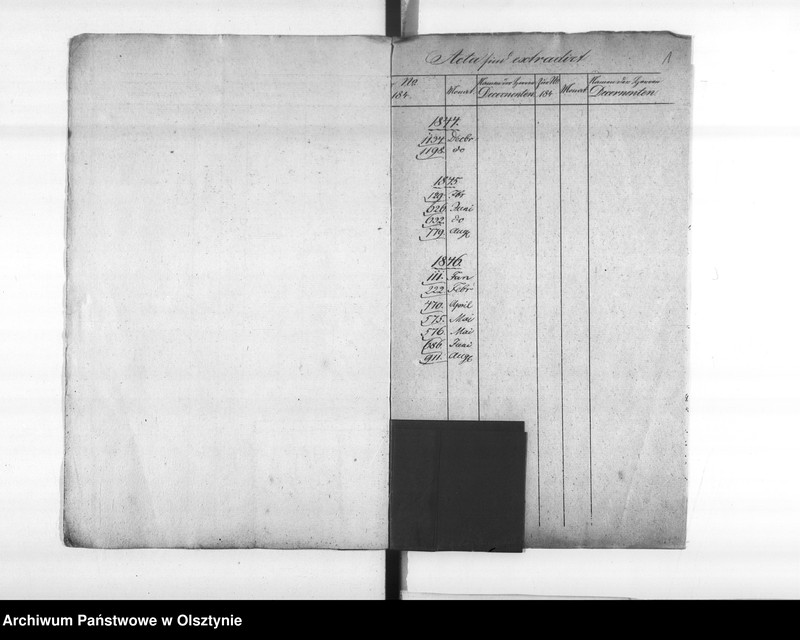 Acta sind extradirt
1
No 184 Monat Namen der Herren Decernenten Jour No 184 Monat Namen der Herren Decernenten
1844.
1137. Decbr
1198. do
1845
129. Fbr
626. Juni
632. do
779. Aug
1846.
111. Jan
222. Febr
470. April
575. Mai
576. Mai
686. Juni
911. Aug
Archiwum Państwowe w Olsztynie